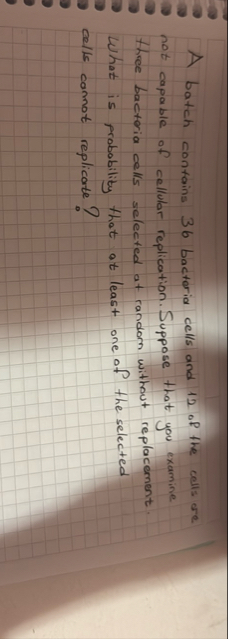 A batch contains 36 bacteria cells and 12 of the cells are
not capable of cellular replication. Suppose that you examine
three bacteria cells selected at random without replacement.
What is probability that at least one of the selected
cells cannot replicate?